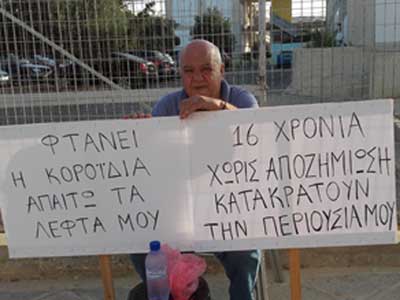 ΦΤΑΝΕΙ
Η ΚΟΡΟΪΔΙΑ
ΑΠΑΙΤΩ ΤΑ
ΛΕΦΤΑ ΜΟΥ
16 ΧΡΟΝΙΑ
ΧΩΡΙΣ ΑΠΟΖΗΜΙΩΣΗ
ΚΑΤΑΚΡΑΤΟΥΝ
ΤΗΝ ΠΕΡΙΟΥΣΙΑ ΜΟΥ